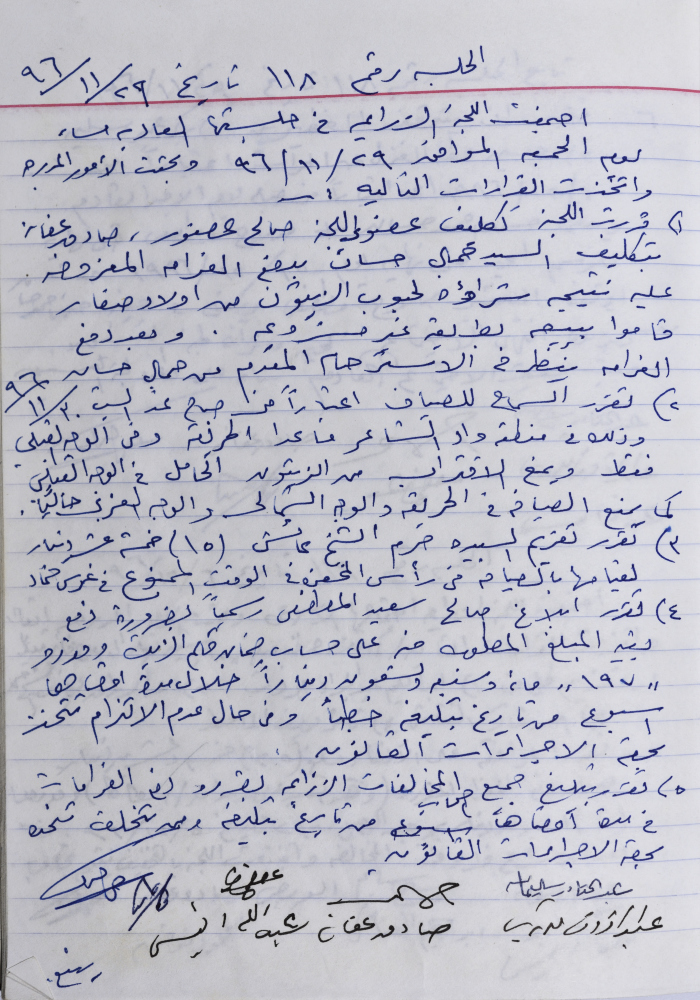 الجلسه رقم ١١٨ تاريخ ٢٩/١١/٩٦
اجتمعت اللجنة الزراعيه في جلستها العاديه مساء
يوم الجمعه الموافق ٢٩/١١/٩٦ وبحثت الأمور المدرجه
واتخذت القرارات التاليه :ـ
١) قررت اللجنة تكليف عضوي اللجنة صالح عصفور، صادق عفانه
بتكليف السيد جمال حسان بدفع الغرامه المفروضه
عليه نتيجه شراؤه لحبوب الزيتون من اولاد صغار
قاموا ببيعه بطريقة غير مشروعه . وبعد دفع
الغرامه ينظر في الاسترحام المقدم من جمال حسان
٢) تقرر السماح للصياف اعتباراً من صباح غد السبت ٣٠/١١/٩٦
وذلك في منطقة واد الشاعر ما عدا الحريقة وفي الوجه القبلي
فقط ويمنع الاقتراب من الزيتون الحامل في الوجه القبلي
كما يمنع الصيافه في الحريقه والوجه الشمالي والوجه الغربي حالياً.
٣) تقرر تغريم السيده حرم الشيخ عايش (١٥) خمسة عشر دينار
لقيامها بالصيافه في رأس في الوقت الممنوع في غرس
٤) تقرر ابلاغ صالح سعيد المصطفى رسمياً بضرورة دفع
بقية المبلغ المطلوب منه على حساب ضمان الزيت وقدره
"١٩٧" مائة وسبعه وتسعون ديناراً خلال مدة اقصاها
اسبوع من تاريخ تبليغه خطياً وفي حال عدم الالتزام تتخذ
بحقه الاجراءات القانونيه.
٥) تقرر تبليغ جميع المخالفات الزراعيه بضرورة دفع الغرامات
في مدة أقصاها اسبوع من تاريخ تبليغه ومن يتخلف تتخذ
بحقه الاجراءات القانونيه
عبد القادر سليمان
صادق عفانه عبد الله